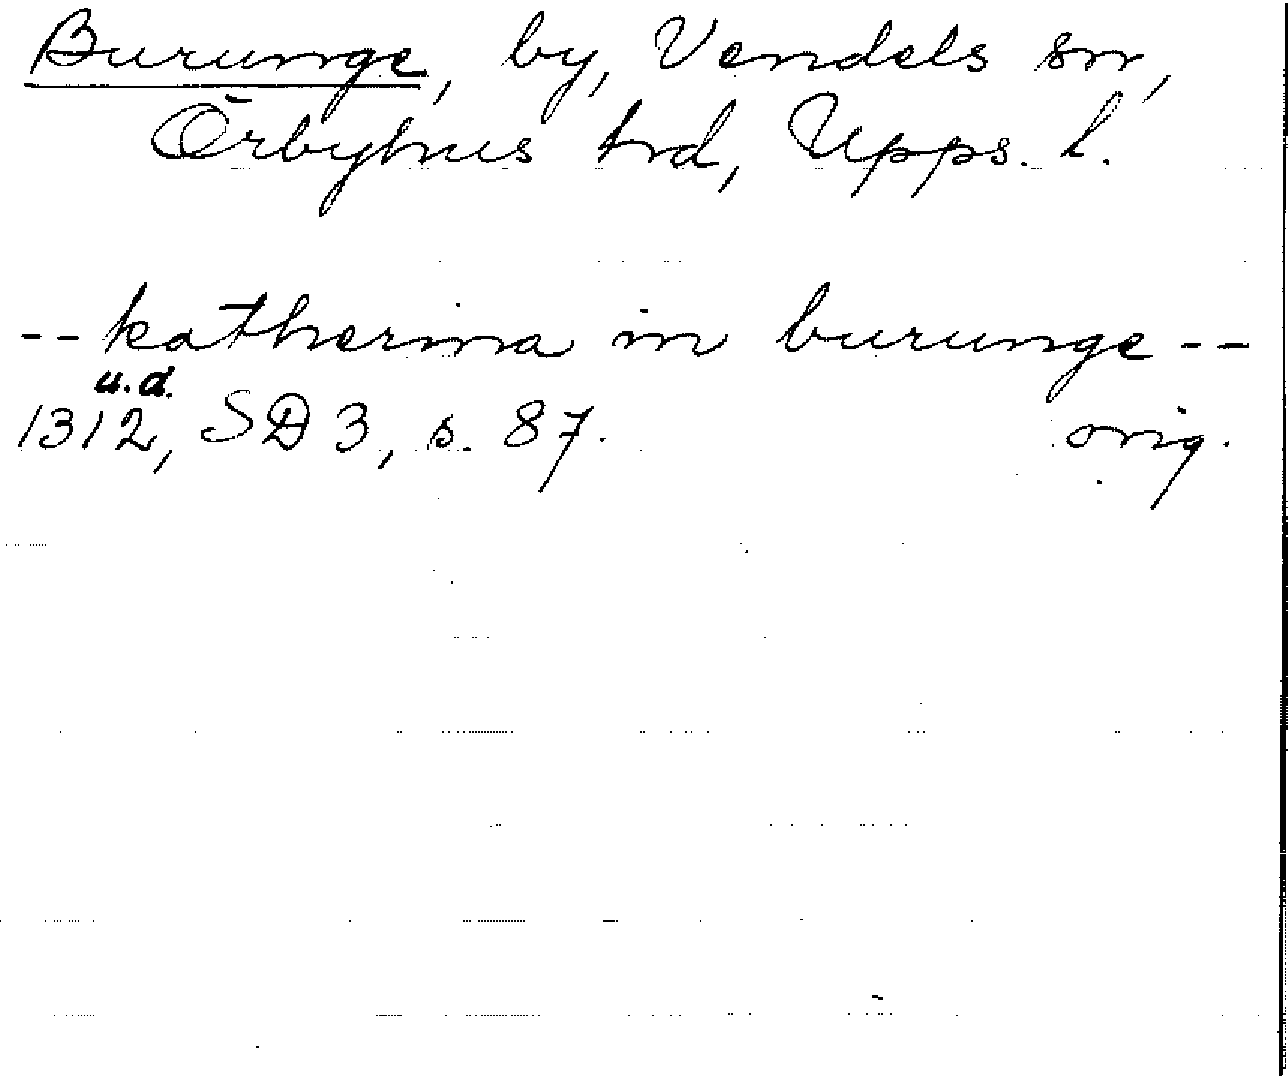 Burunge, by, Vendels sn,
Örbyhus hd, Upps. l.
-- katherina in burunge --
u.d.
1312, SD 3, s. 87. orig.